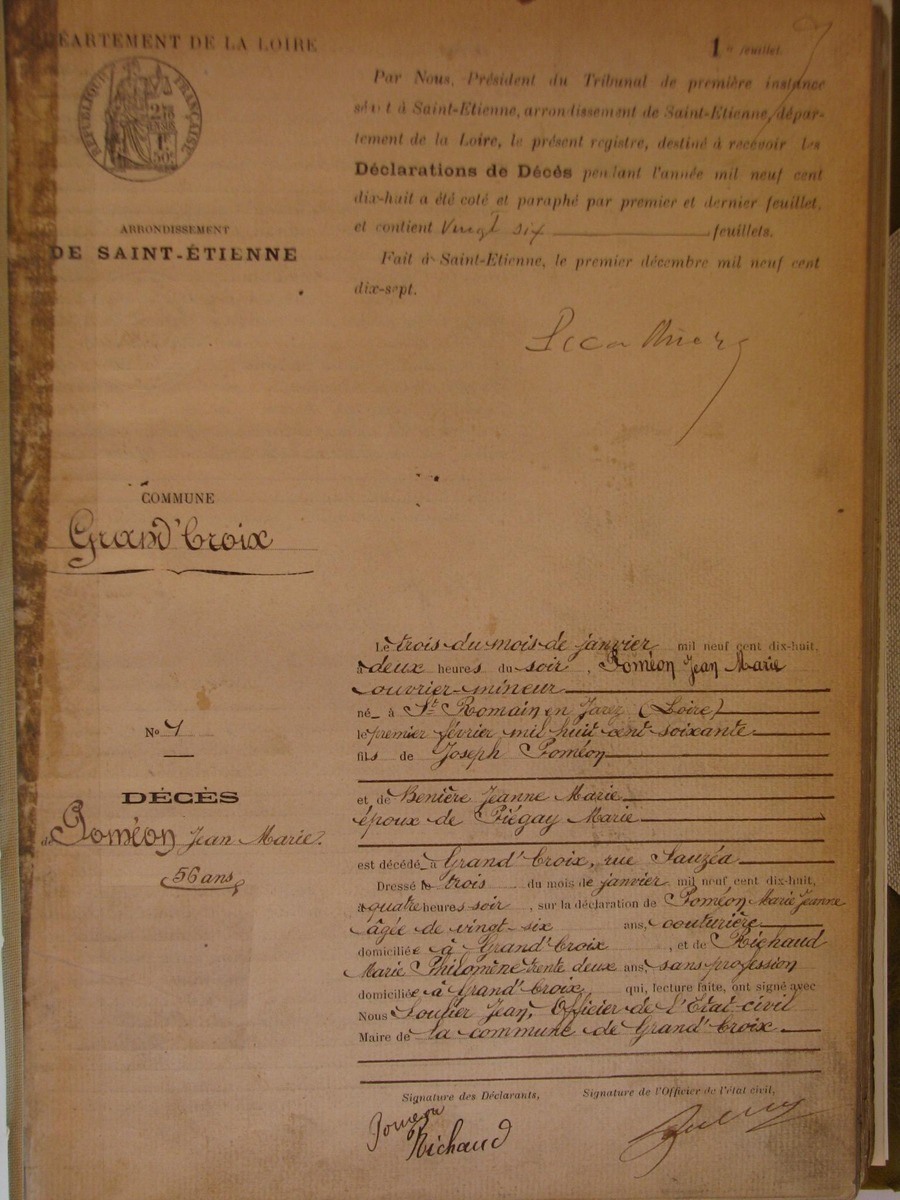 DÉPARTEMENT DE LA LOIRE
1er feuillet.
RÉPUBLIQUE FRANÇAISE
Par Nous, Président du Tribunal de première instance
séant à Saint-Etienne, arrondissement de Saint-Etienne, dépar-
tement de la Loire, le présent registre, destiné à recevoir les
Déclarations de Décès pendant l'année mil neuf cent
dix-huit a été coté et paraphé par premier et dernier feuillet,
et contient Vingt six feuillets.
Fait à Saint-Etienne, le premier décembre mil neuf cent
dix-sept.
ARRONDISSEMENT
DE SAINT-ÉTIENNE
COMMUNE
Grand'Croix
No 1
DÉCÈS
de Poméon Jean Marie.
56 ans
Le trois du mois de janvier mil neuf cent dix-huit,
à deux heures du soir, Poméon Jean Marie
ouvrier-mineur
né à St Romain en Jarez (Loire)
le premier février mil huit cent soixante
fils de Joseph Poméon
et de Benière Jeanne Marie
époux de Piégay Marie
est décédé à Grand'Croix, rue Sauzéa
Dressé le trois du mois de janvier mil neuf cent dix-huit,
à quatre heures soir, sur la déclaration de Poméon Marie Jeanne
âgée de vingt-six ans, couturière
domiciliée à Grand'Croix, et de Richaud
Marie Philomène trente deux ans, sans profession
domiciliée à Grand'Croix, qui, lecture faite, ont signé avec
Nous Jean, Officier de l'Etat-civil
Maire de la commune de Grand'Croix
Signature des Déclarants, Signature de l'Officier de l'état civil,
Pomeon
Richaud